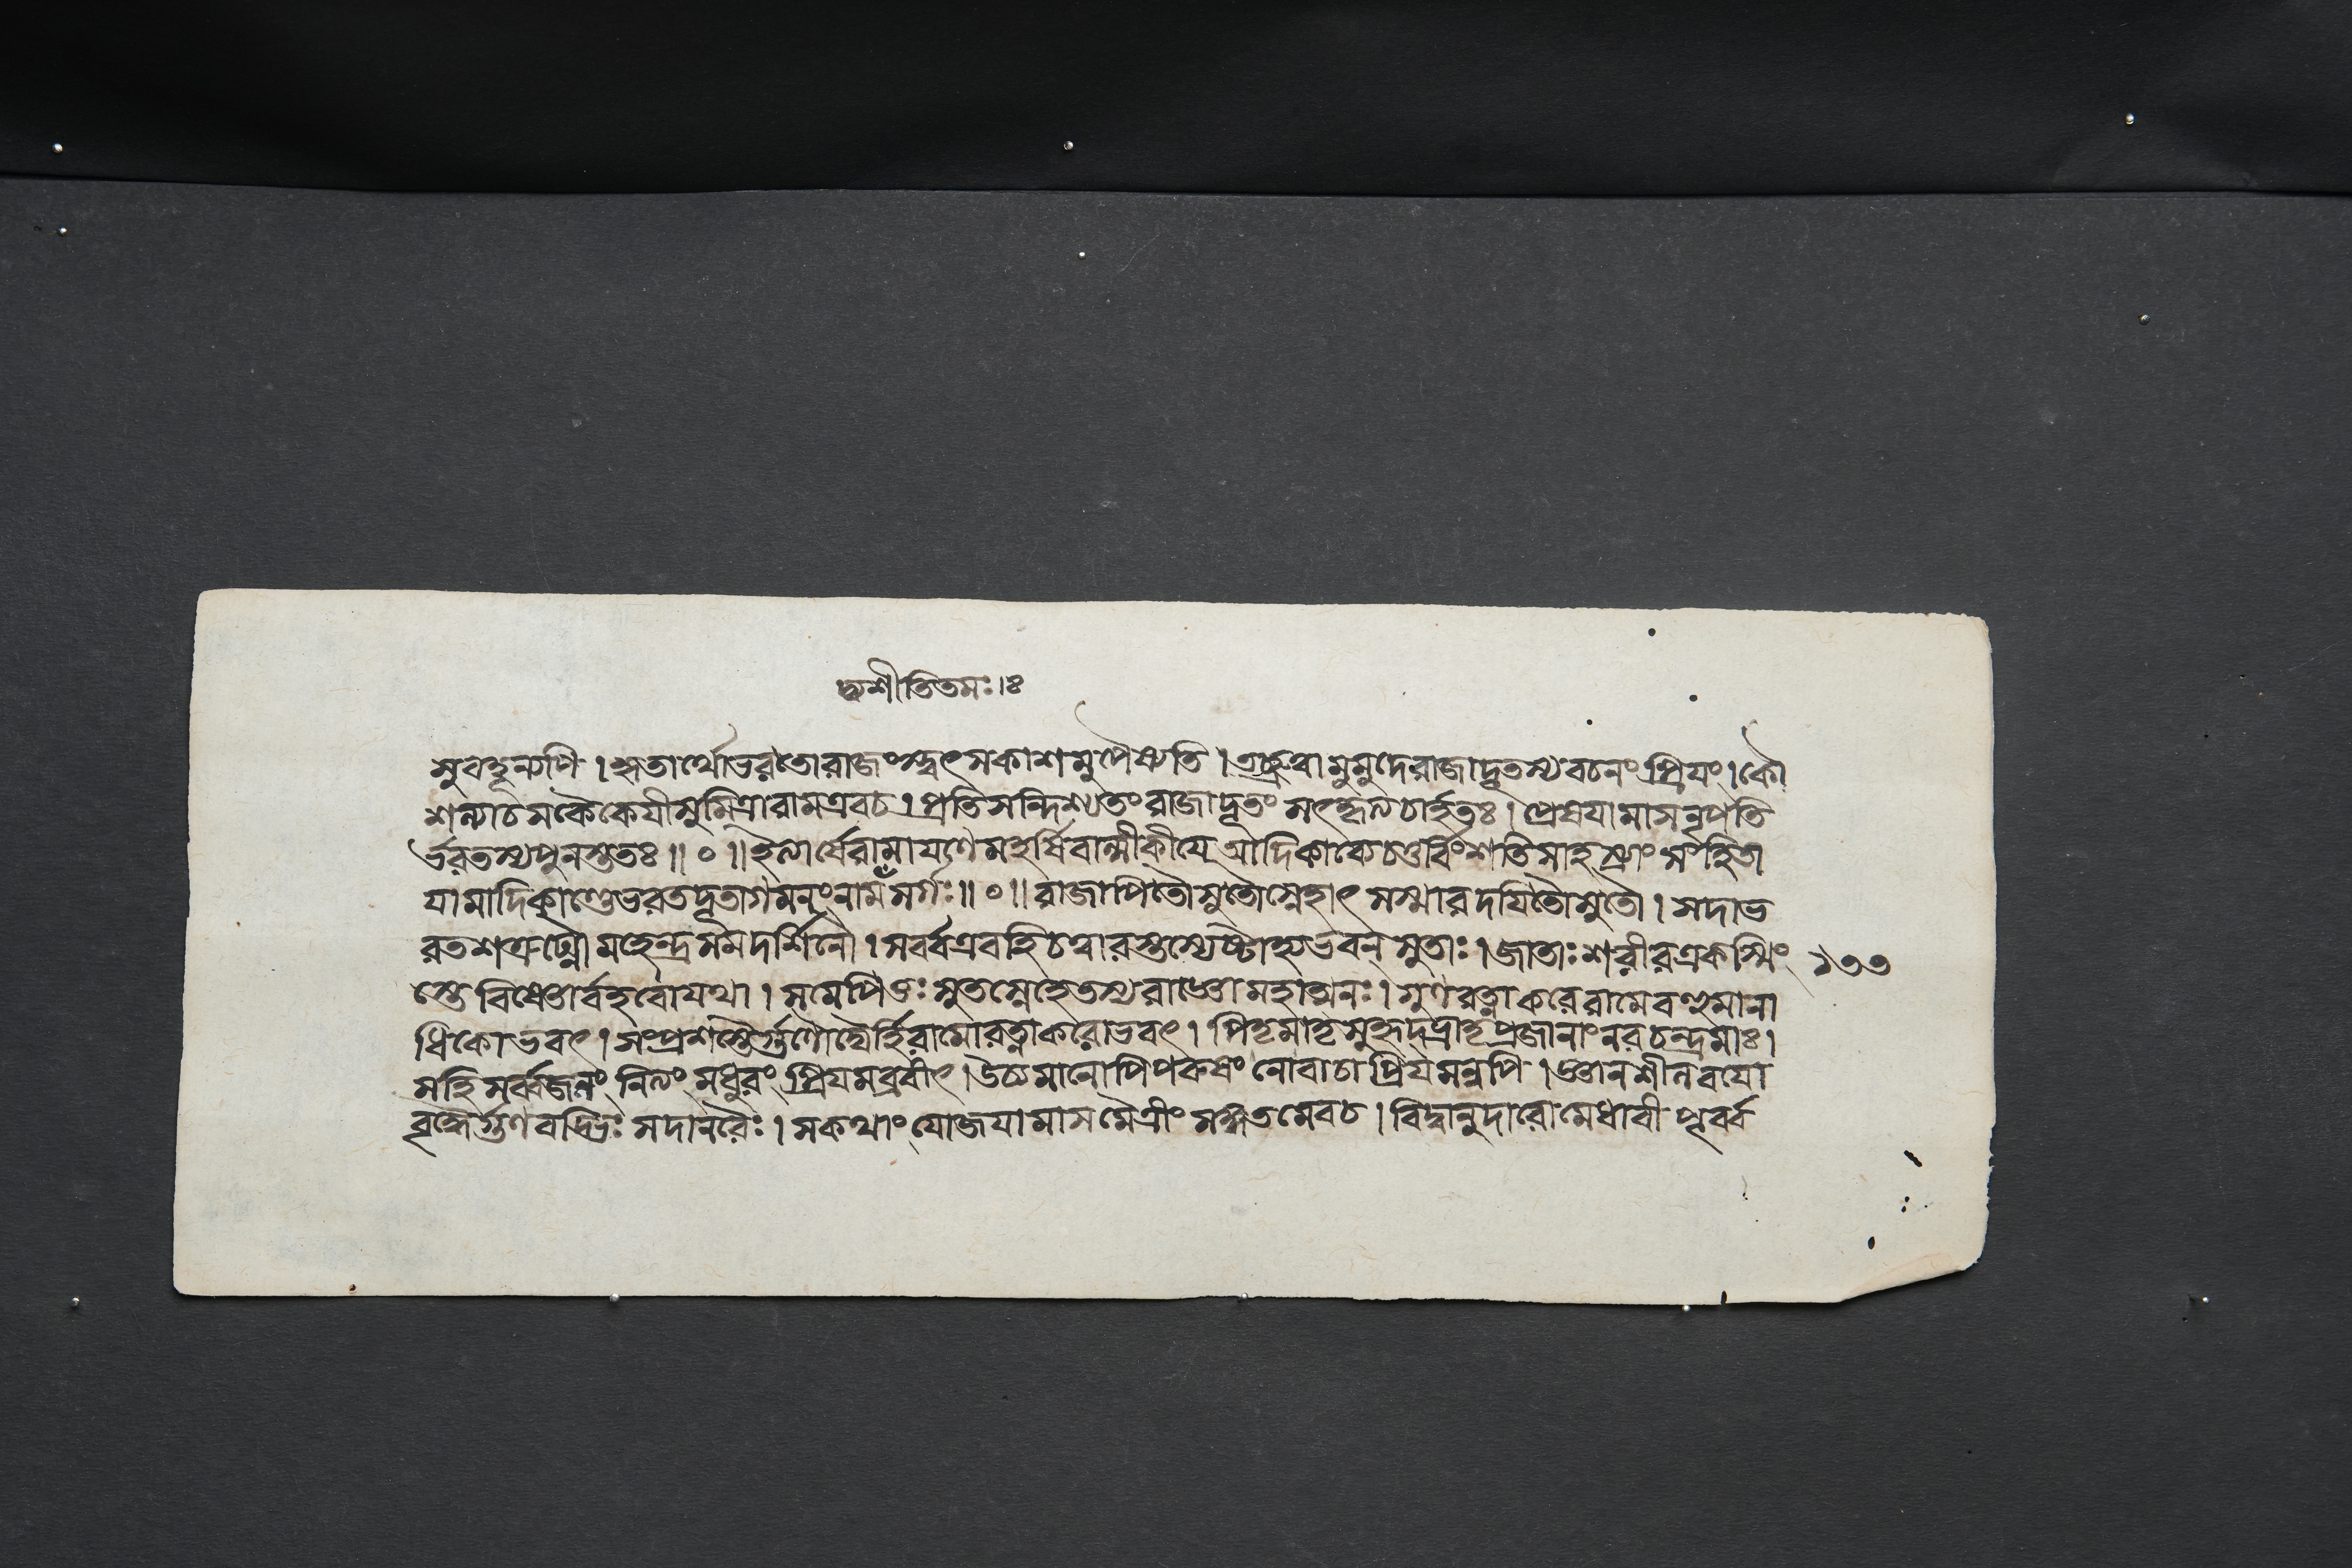 দ্ব্যশীতিতমঃ।ঃ
সুবহূন্যপি। কৃতার্থোভরতোরাজংস্ত্বৎসকাশমুপৈষ্যতি। এতচ্ছ্রুত্বামুমুদেরাজাদূতস্যবচনংপ্রিযং। কৌ
শল্যাচসকৈকেযীসুমিত্রারামএবচ। প্রতিসন্দিশ্যতংরাজাদূতং সৎকৃত্যচার্হতঃ। প্রেষযামাসনৃপতি
র্ভরতস্যপুনস্ততঃ॥ ০ ॥ ইত্যার্ষেরামাযণেমহর্ষিবাল্মীকীযে আদিকাব্যেচতুর্বিংশতিসাহস্র্যাং সংহিতা
যামাদিকাণ্ডেভরতদূতাগমনংনামসর্গঃ॥ ০ ॥ রাজাপিতৌসুতৌস্নেহাৎ সস্মারদযিতৌসুতৌ। সদাভ
রতশত্রুঘ্নৌমহেন্দ্রসমদর্শিনৌ। সর্ব্বএবহিচত্বারস্তস্যেষ্টাহ্যভবন্ সুতাঃ। জাতাঃশরীরএকস্মিং ১৩৩
স্তে বিষ্ণোর্বাহবোযথা। সমেপিতুঃ সুতস্নেহেতস্যরাজ্ঞোমহাত্মনঃ। গুণরত্নাকরেরামেবহুমানা
ধিকোভবৎ। সংপ্রশস্তৈর্গুণৌঘৈর্হিরামোরত্নাকরোভবৎ। পিতৃমাতৃসুহৃদ্ভ্রাতৃপ্রজানাংনরচন্দ্রমাঃ।
সহিসর্ব্বজনং নিত্যং মধুরং প্রিযমব্রবীৎ। উচ্যমানোপিপরুষং নোবাচাপ্রিযমন্বপি। জ্ঞানশীলবযো
বৃদ্ধৈর্গুণবদ্ভিঃ সদানরৈঃ। সকথাং যোজযামাসমৈত্রীং সঙ্গতমেবচ। বিদ্বানুদারোমেধাবী পূর্ব্ব